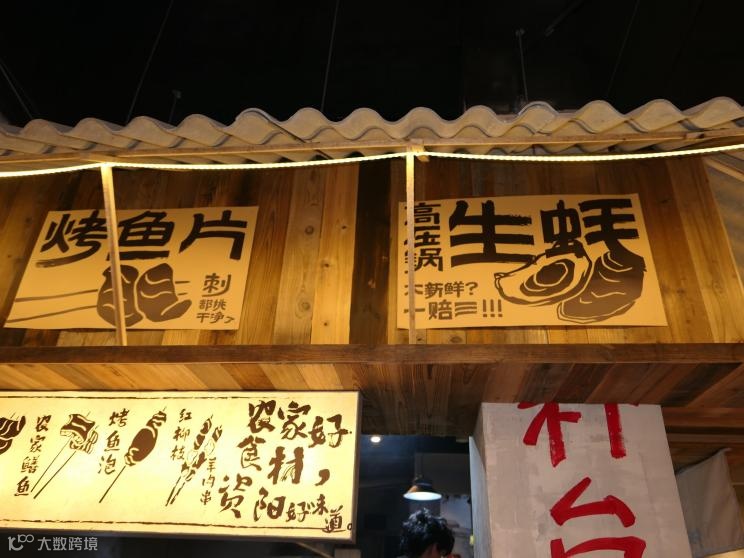 烤鱼片
刺
都挑
干净了
高压锅
生蚝
不新鲜?
一赔三!!!
农家鳝鱼
烤鱼泡
红柳枝
羊肉串
农家好
食材，
资阳好味道。
料台
大数跨境